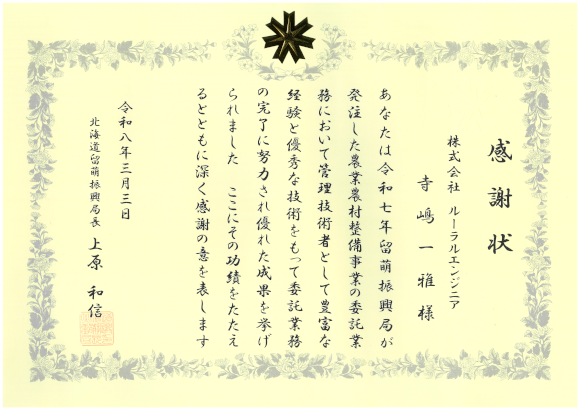 感謝状
株式会社 ルーラルエンジニア
寺嶋一雅様
あなたは令和七年留萌振興局が
発注した農業農村整備事業の委託業
務において管理技術者として豊富な
経験と優秀な技術をもって委託業務
の完了に努力され優れた成果を挙げ
られました ここにその功績をたたえ
るとともに深く感謝の意を表します
令和八年三月三日
北海道留萌振興局長 上原和信